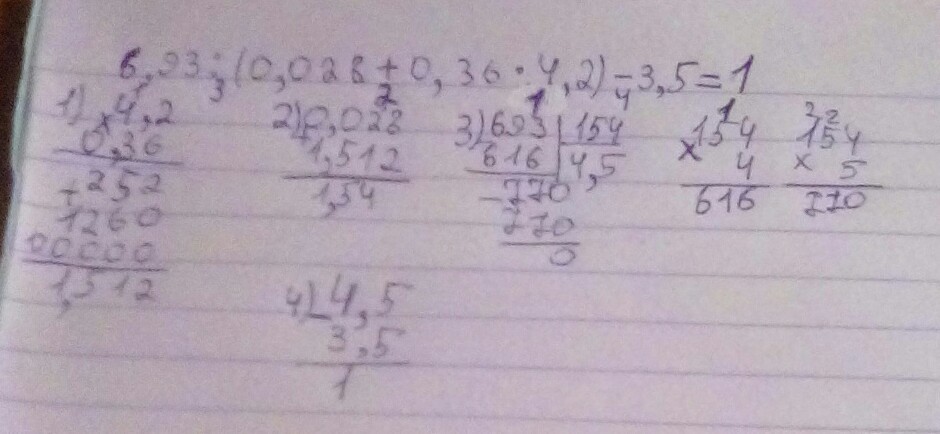 6,93:(0,028+0,36·4,2)-3,5=1
3 2 1 4
1) ×4,2
0,36
+252
1260
00000
1,512
2) 0,028
1,512
1,54
3) 693 | 154
616 | 4,5
-770
770
0
1
×154
4
616
3 2
154
× 5
770
4) -4,5
3,5
1